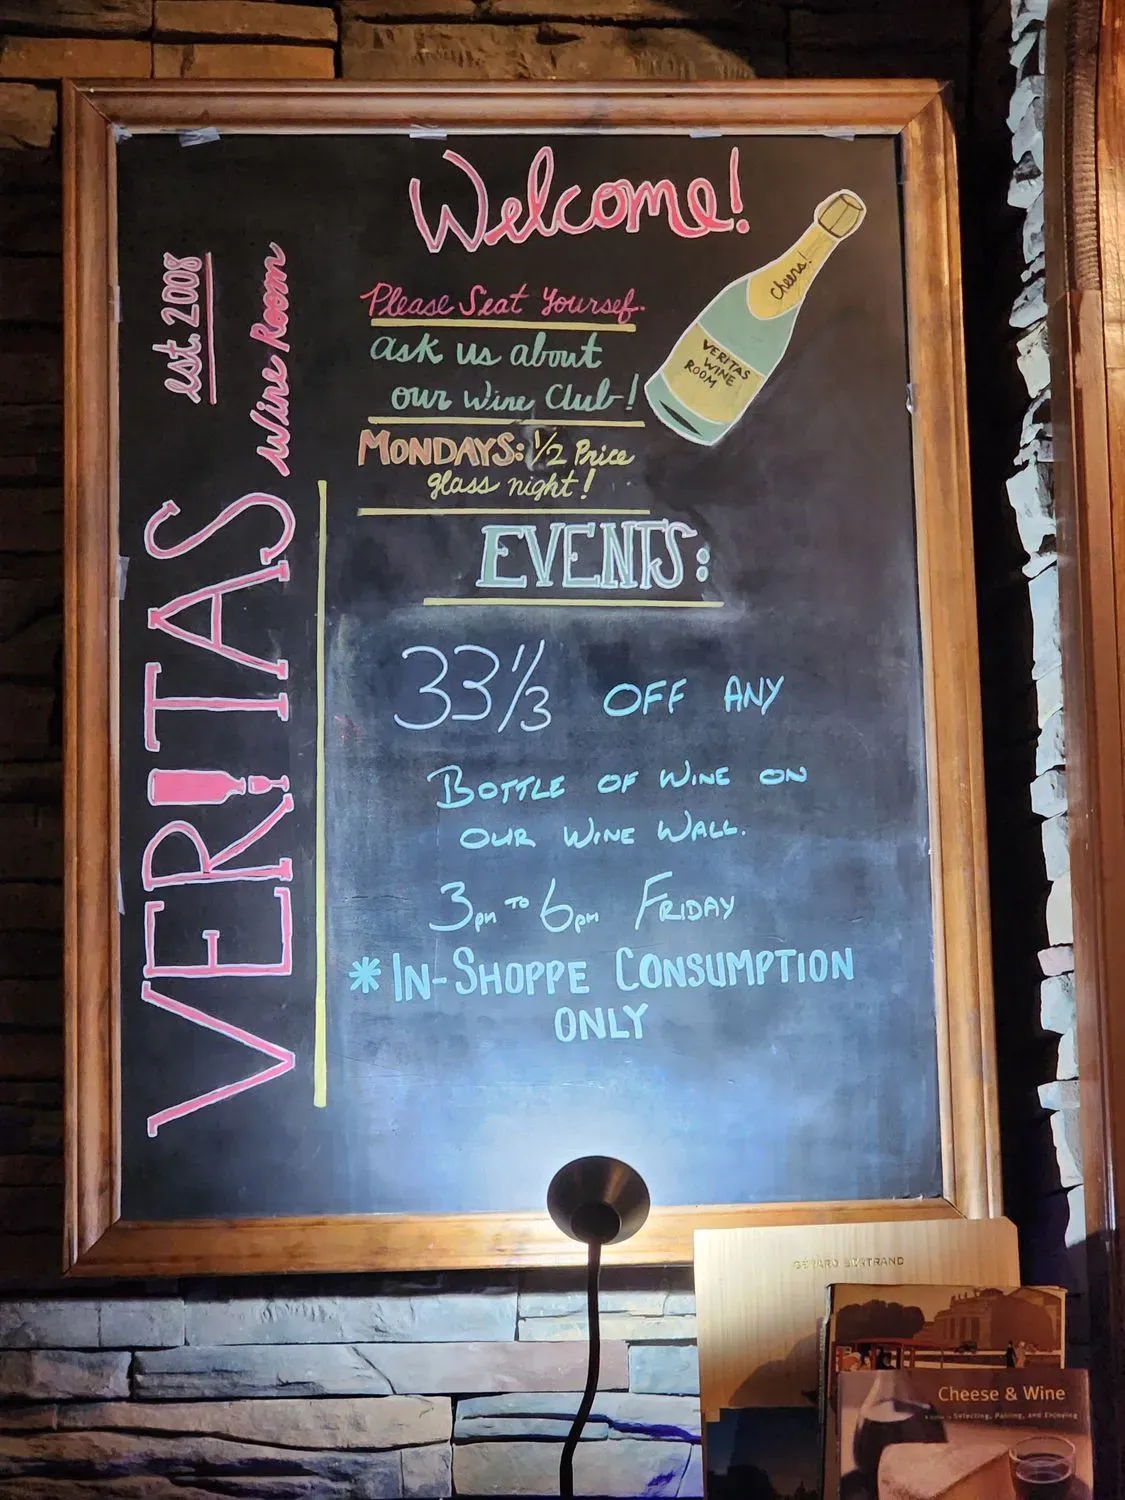 Welcome!
Please Seat Yoursef.
ask us about
our Wine Club!
MONDAYS: 1/2 Price
glass night!
Cheers!
VERITAS
WINE
ROOM
EVENTS:
33 1/3 OFF ANY
BOTTLE OF WINE ON
OUR WINE WALL.
3pm TO 6pm FRIDAY
*IN-SHOPPE CONSUMPTION
ONLY
VERITAS Wine Room
est. 2008
GERARD BERTRAND
Cheese & Wine
Selecting, Pairing, and Enjoying